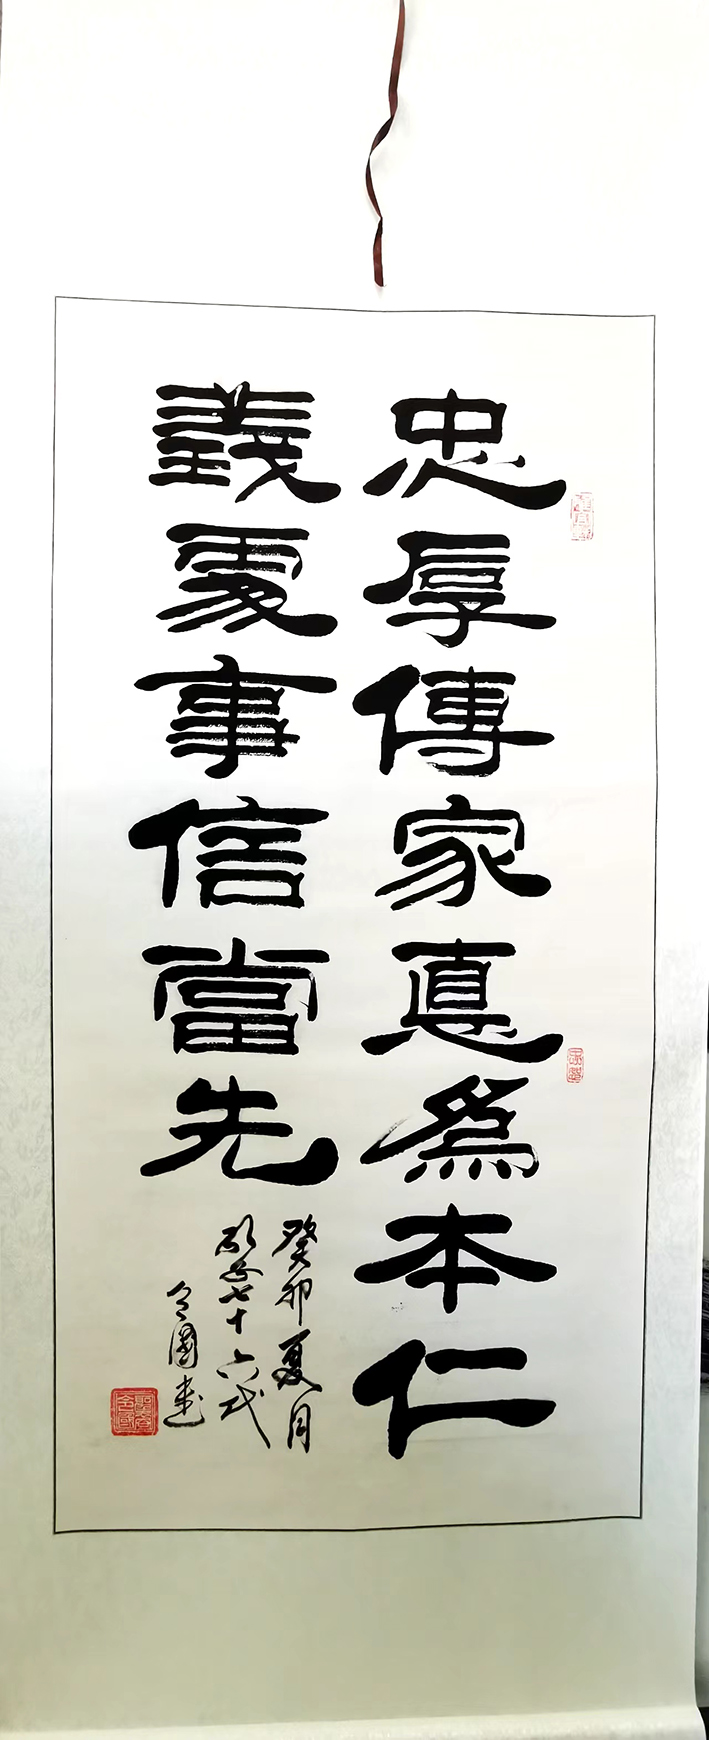 忠厚傳家悳爲本仁
義處事信當先
癸卯夏月
七十六弍